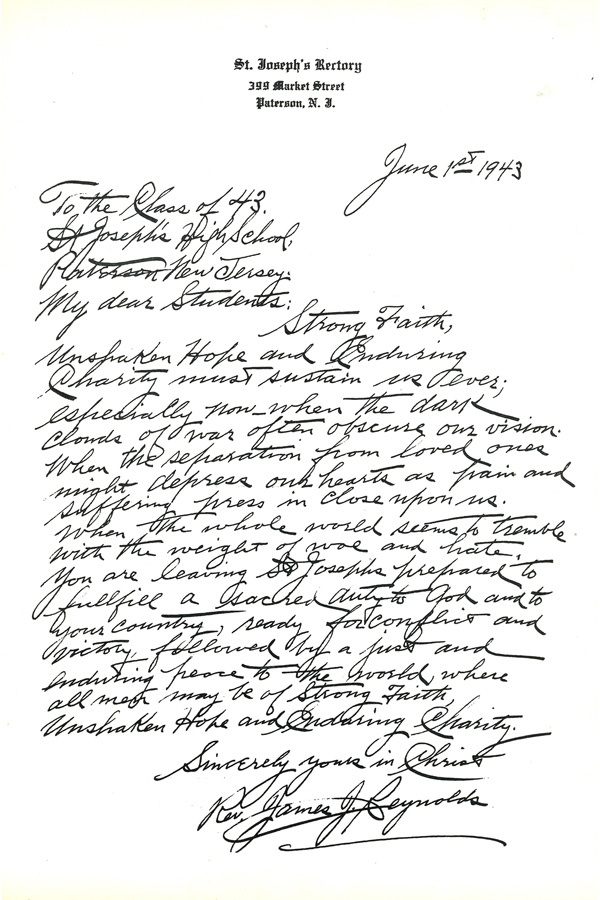 St. Joseph's Rectory
399 Market Street
Paterson, N. J.
June 1st 1943
To the Class of 43.
St Joseph's High School,
Paterson New Jersey.
My dear Students:
Strong Faith,
Unshaken Hope and Enduring
Charity must sustain us ever;
especially now—when the dark
clouds of war often obscure our vision.
When the separation from loved ones
might depress our hearts as pain and
suffering press in close upon us.
When the whole world seems to tremble
with the weight of woe and hate.
You are leaving St Josephs prepared to
fullfill a sacred duty to God and to
your country, ready for conflict and
victory, followed by a just and
enduring peace to the world, where
all men may be of Strong Faith,
Unshaken Hope and Enduring Charity.
Sincerely yours in Christ
Rev. James J. Reynolds